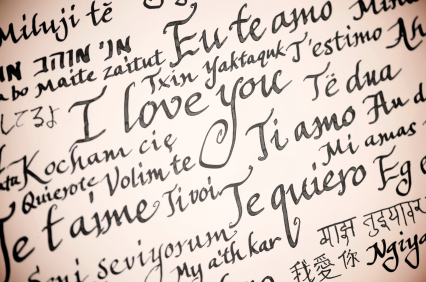 Miluji tě
Eu te amo
אני אוהב
Maite zaitut
Txin Yaktaquk
T'estimo
I love you
Të dua
してるよ
Kocham cię
Ti amo
Quierote
Volim te
Mi amas
Je t'aime
Ti voi
Te quiero
Seni seviyorum
My a'th kar
我愛你